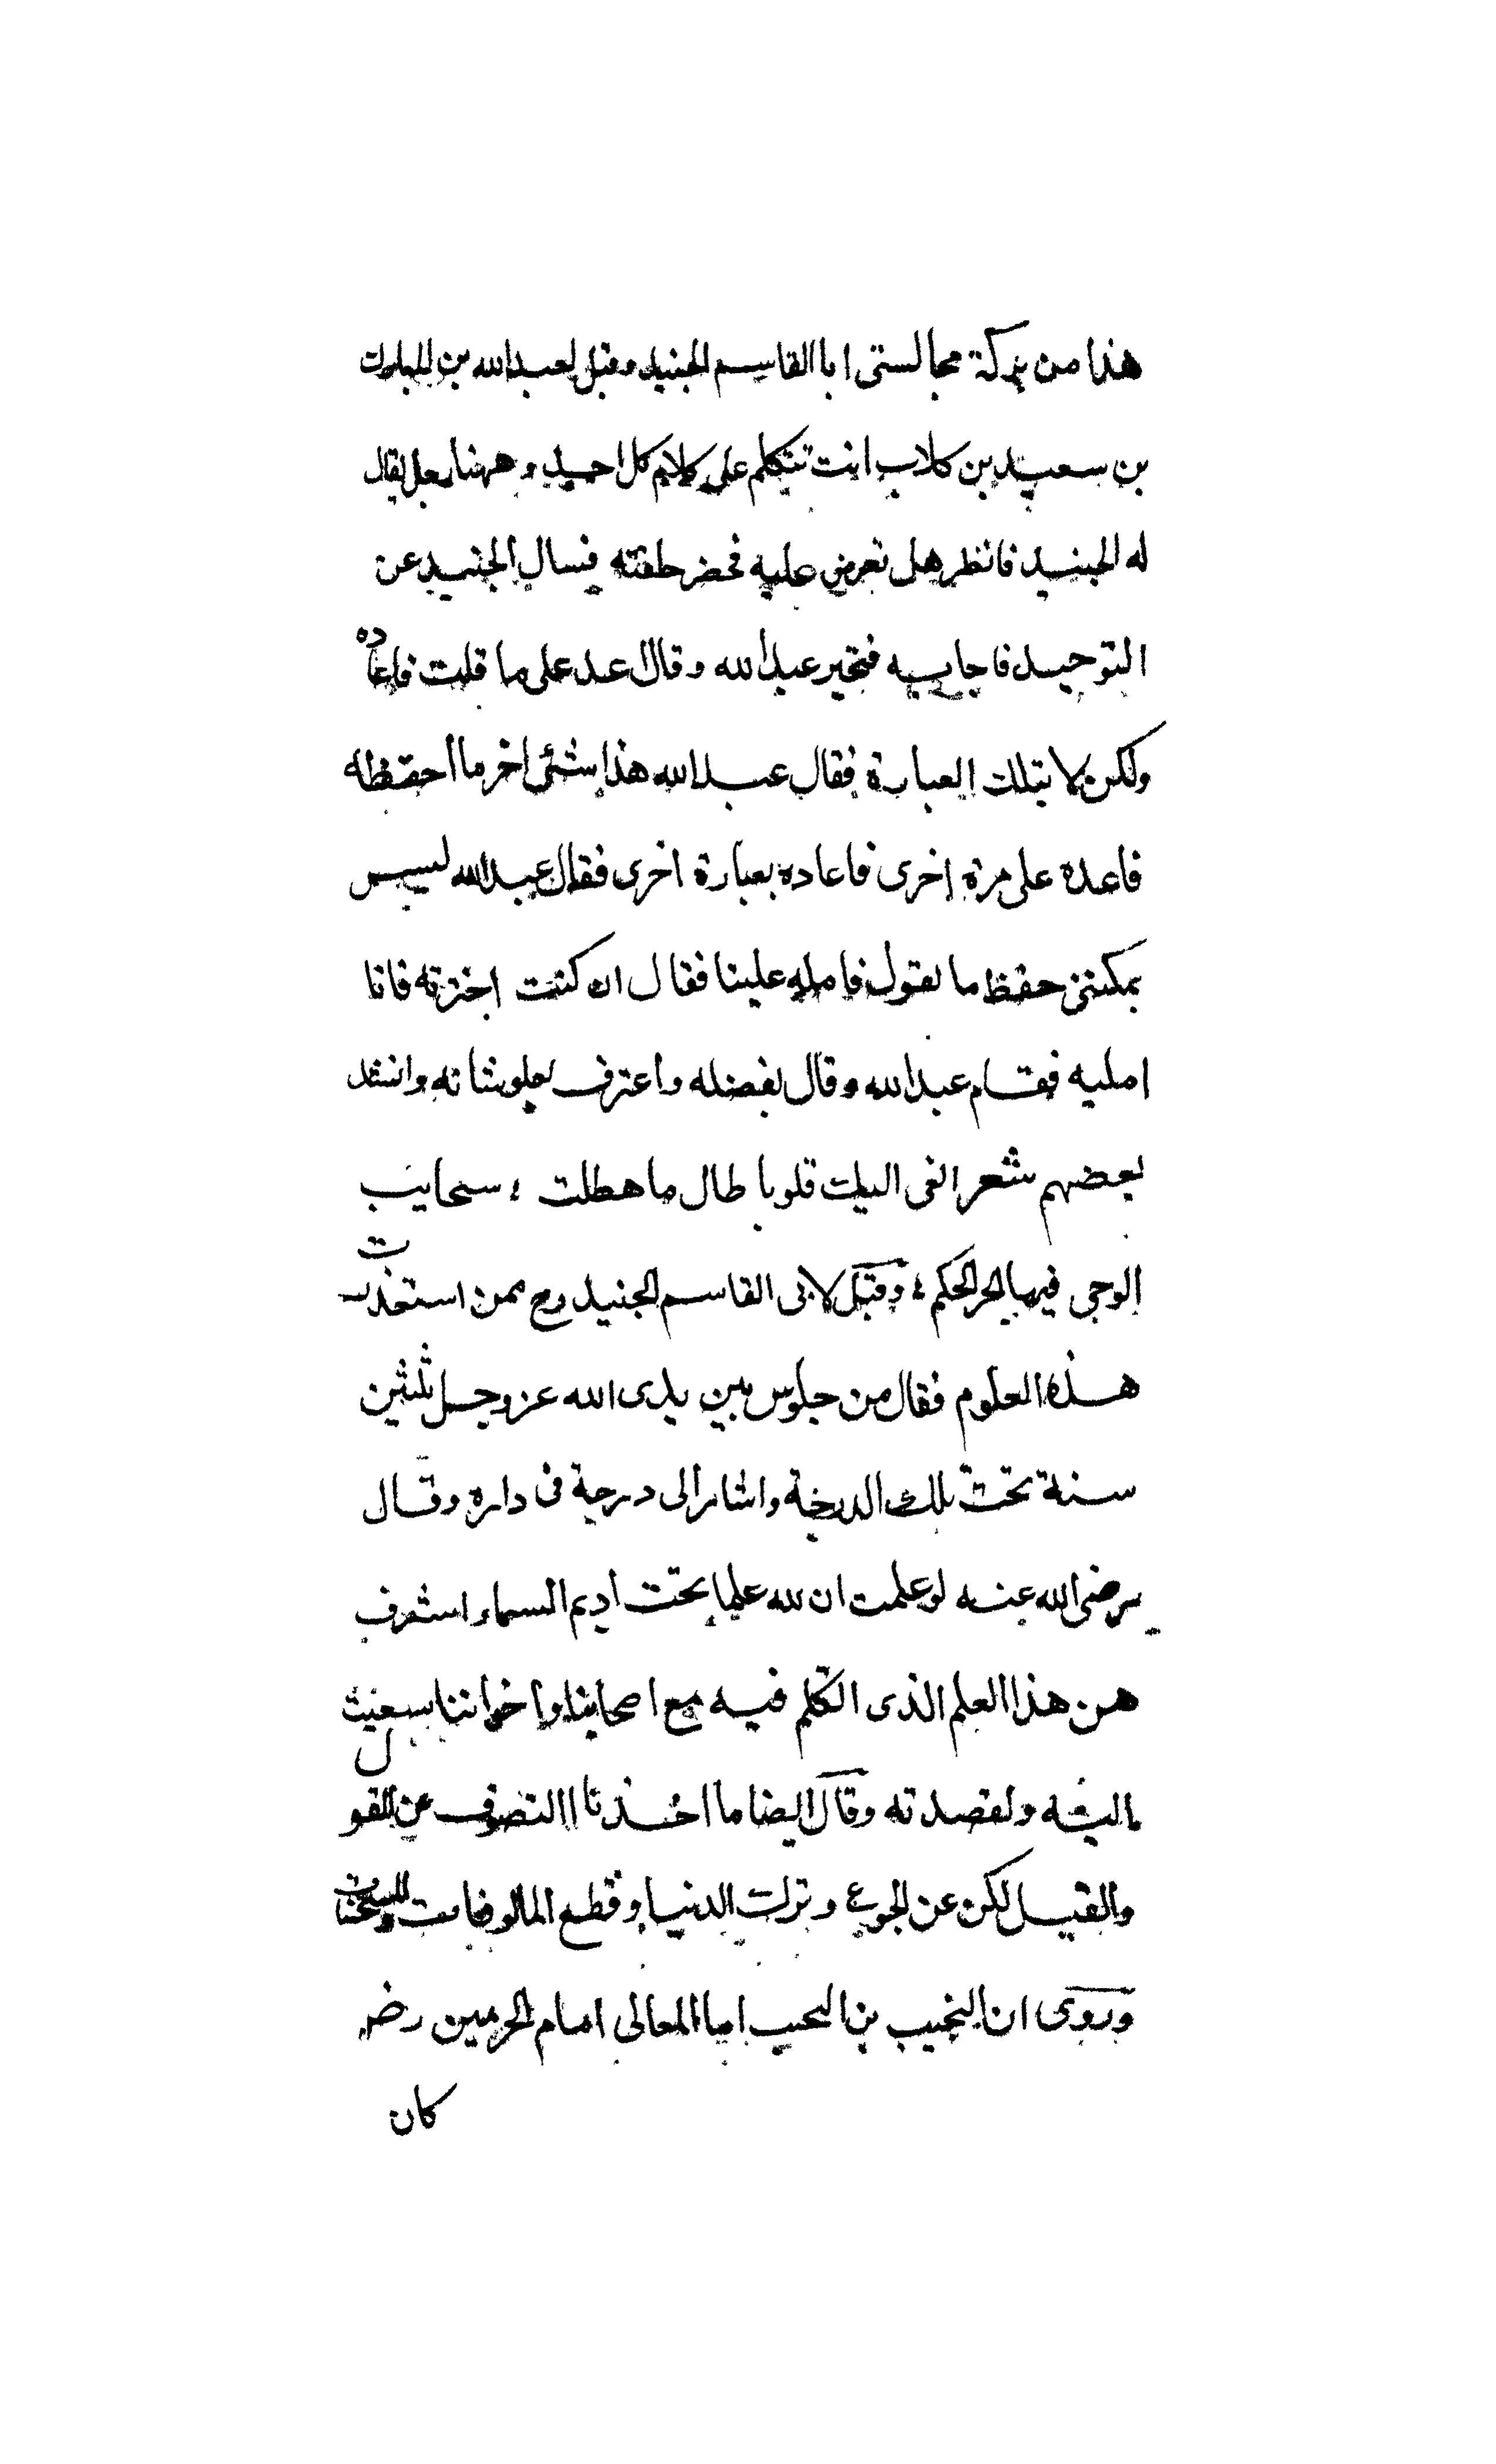 هذا من بركة مجالستى ابا القاسم الجنيد وقيل لعبد الله بن المبارك
بن سعيد بن كلاب انت تتكلم على كلام كل احد وههنا رجل يقال
له الجنيد فانظر هل تعرض عليه فحضر حلقته فسال الجنيد عن
التوحيد فاجابه فتحير عبد الله وقال اعد على ما قلت فاعاده
ولكن لا بتلك العبارة فقال عبد الله هذا شئى اخر ما احفظه
فاعده على مرة اخرى فاعاده بعبارة اخرى فقال عبد الله ليس
يمكننى حفظ ما تقول فامله علينا فقال ان كنت اجزته فانا
امليه فقام عبد الله وقال بفضله واعترف بعلو شانه وانشد
بعضهم شعر انعى اليك قلوبا طال ما هطلت ؛ سحايب
الوحى فيها ابحر الحكم ؛ وقيل لابى القاسم الجنيد رح ممن استفدت
هذه العلوم فقال من جلوس بين يدى الله عز وجل ثلثين
سنة تحت تلك الدرجة واشار الى درجة فى داره وقال
رضى الله عنه لو علمت ان لله علما تحت اديم السماء اشرف
من هذا العلم الذى اتكلم فيه مع اصحابنا واخواننا سعيت
اليه ولقصدته وقال ايضا ما اخذنا التصوف عن القول
والقيل لكن عن الجوع وترك الدنيا وقطع المالوفات
وروى ان النجيب بن النجيب ابا المعالى امام الحرمين رضـ
كان